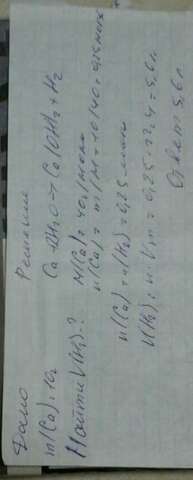 Дано
m(Ca)=10г
Найти V(H₂)-?
Решение
Ca+2H₂O → Ca(OH)₂ + H₂
M(Ca)=40г/моль
n(Ca) = m/M = 10/40 = 0,25 моль
n(Ca) = n(H₂) = 0,25 моль
V(H₂) = n·Vm = 0,25·22,4 = 5,6 л
Ответ 5,6 л